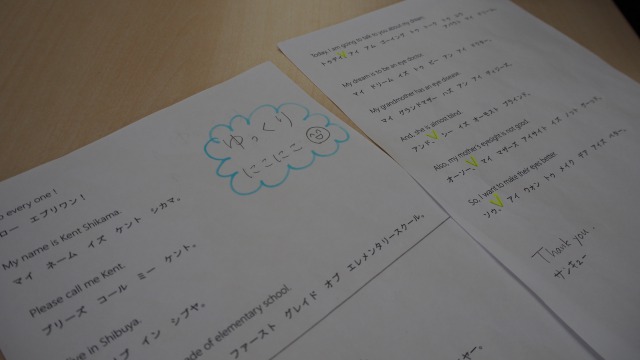 o every one !
ロー エブリワン！
My name is Kent Shikama.
マイ ネーム イズ ケント シカマ。
Please call me Kent.
プリーズ コール ミー ケント。
live in Shibuya.
ブ イン シブヤ。
ade of elementary school.
ファースト グレイド オブ エレメンタリースクール。
ゆっくり
にこにこ
Today, I am going to talk to you about my dream.
トゥデイ アイ アム ゴーイング トゥ トーク トゥ
My dream is to be an eye doctor.
マイ ドリーム イズ トゥ ビー アン アイ ドクター。
My grandmother has an eye disease.
マイ グランドマザー ハズ アン アイ ディジーズ。
And, she is almost blind.
アンド、 シー イズ オーモスト ブラインド。
Also, my mother's eyesight is not good.
オーソー、 マイ マザーズ アイサイト イズ ノット グッド。
So, I want to make their eyes better.
ソウ、 アイ ウォン トゥ メイク
Thank you.
サンキュー